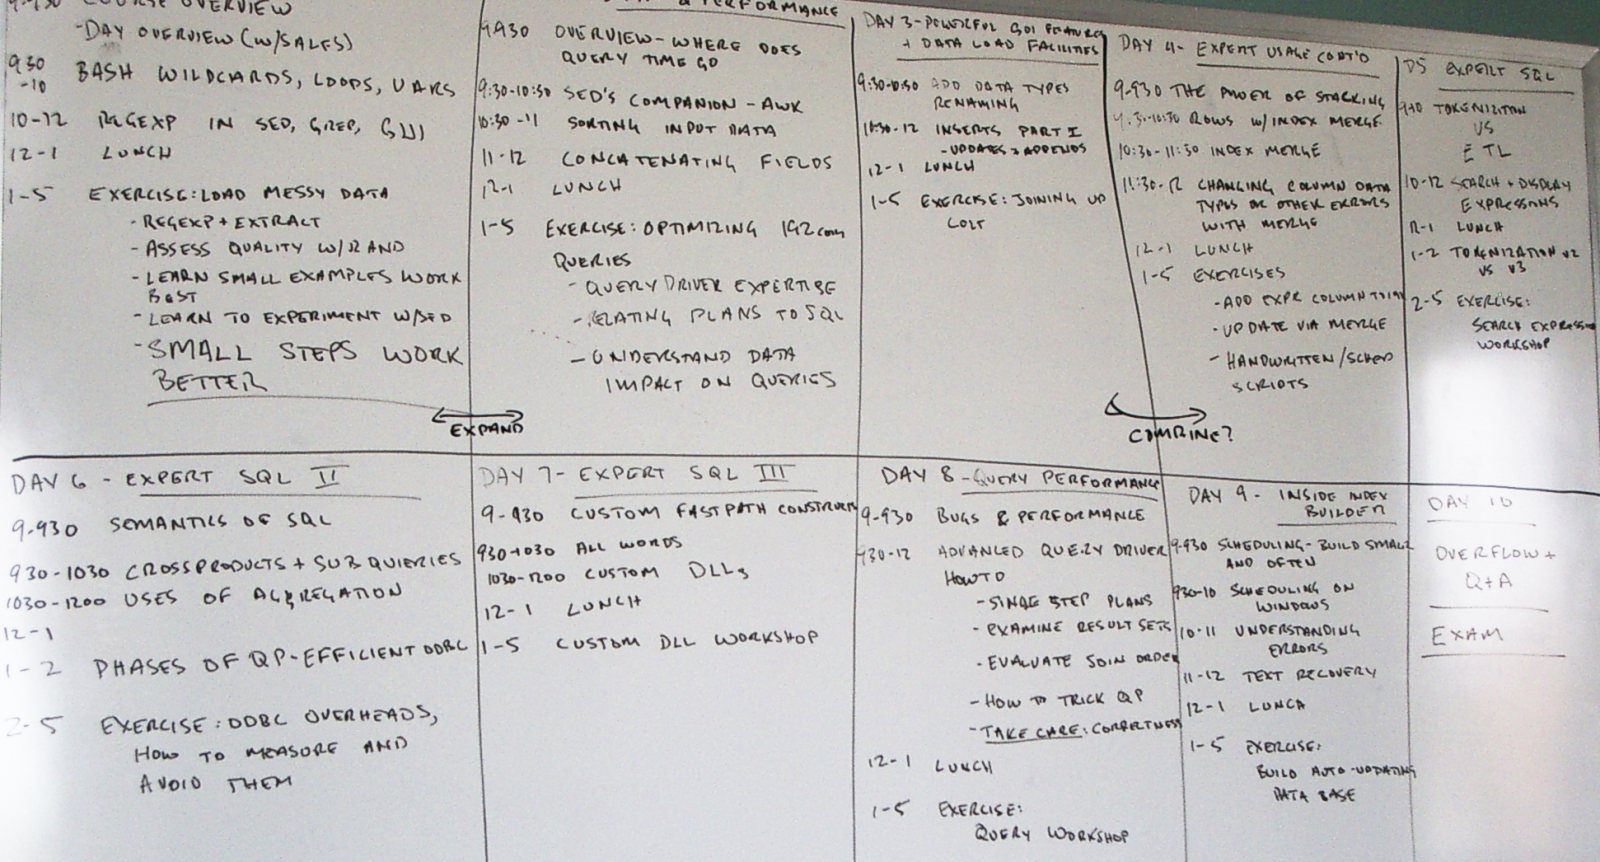 9-930 COURSE OVERVIEW
-DAY OVERVIEW (W/SALES)
930-10 BASH WILDCARDS, LOOPS, VARS
10-12 REGEXP IN SED, GREP, GUI
12-1 LUNCH
1-5 EXERCISE: LOAD MESSY DATA
- REGEXP + EXTRACT
- ASSESS QUALITY W/RAND
- LEARN SMALL EXAMPLES WORK BEST
- LEARN TO EXPERIMENT W/SED
- SMALL STEPS WORK BETTER
EXPAND
& PERFORMANCE
9-930 OVERVIEW - WHERE DOES
QUERY TIME GO
9:30-10:30 SED'S COMPANION - AWK
10:30-11 SORTING INPUT DATA
11-12 CONCATENATING FIELDS
12-1 LUNCH
1-5 EXERCISE: OPTIMIZING 192com
QUERIES
- QUERY DRIVER EXPERTISE
- RELATING PLANS TO SQL
- UNDERSTAND DATA
IMPACT ON QUERIES
DAY 3 - POWERFUL GUI FEATURES
+ DATA LOAD FACILITIES
9:30-10:30 ADD DATA TYPES
RENAMING
10:30-12 INSERTS PART I
- UPDATES + APPENDS
12-1 LUNCH
1-5 EXERCISE: JOINING UP
COLT
COMBINE?
DAY 4 - EXPERT USAGE CONT'D
9-930 THE POWER OF STACKING
9:30-10:30 ROWS W/INDEX MERGE
10:30-11:30 INDEX MERGE
11:30-12 CHANGING COLUMN DATA
TYPES OR OTHER ERRORS
WITH MERGE
12-1 LUNCH
1-5 EXERCISES
- ADD EXPR COLUMN
- UPDATE VIA MERGE
- HANDWRITTEN/SCHED
SCRIPTS
D5 EXPERT SQL
9-10 TOKENIZITION
VS
ETL
10-12 SEARCH + DISPLAY
EXPRESSIONS
12-1 LUNCH
1-2 TOKENIZATION V2
VS V3
2-5 EXERCISE:
SEARCH EXPRESSION
WORKSHOP
DAY 6 - EXPERT SQL II
9-930 SEMANTICS OF SQL
930-1030 CROSSPRODUCTS + SUB QUIERIES
1030-1200 USES OF AGGREGATION
12-1
1-2 PHASES OF QP-EFFICIENT ODBC
2-5 EXERCISE: ODBC OVERHEADS,
HOW TO MEASURE AND
AVOID THEM
DAY 7 - EXPERT SQL III
9-930 CUSTOM FASTPATH CONSTRUCTS
930-1030 ALL WORDS
1030-1200 CUSTOM DLLs
12-1 LUNCH
1-5 CUSTOM DLL WORKSHOP
DAY 8 - QUERY PERFORMANCE
9-930 BUGS & PERFORMANCE
930-12 ADVANCED QUERY DRIVER
HOWTO
- SINGLE STEP PLANS
- EXAMINE RESULT SETS
- EVALUATE JOIN ORDER
- HOW TO TRICK QP
- TAKE CARE: CORRECTNESS
12-1 LUNCH
1-5 EXERCISE:
QUERY WORKSHOP
DAY 9 - INSIDE INDEX
BUILDER
9-930 SCHEDULING - BUILD SMALL
AND OFTEN
930-10 SCHEDULING ON
WINDOWS
10-11 UNDERSTANDING
ERRORS
11-12 TEXT RECOVERY
12-1 LUNCH
1-5 EXERCISE:
BUILD AUTO-UPDATING
DATA BASE
DAY 10
OVERFLOW +
Q+A
EXAM